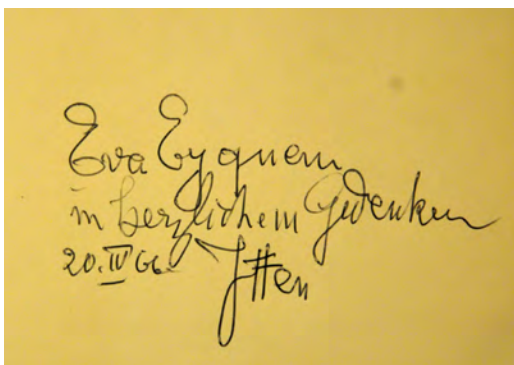 Eva Eyquem
in herzlichem Gedenken
20. IV 66. Itten